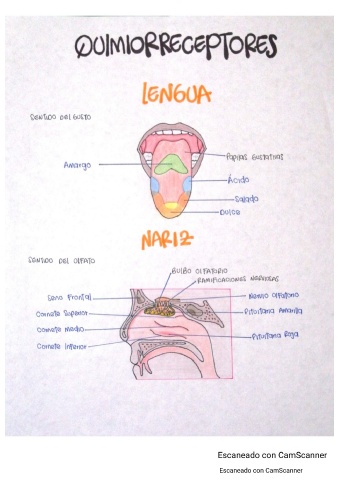 QUIMIORRECEPTORES
LENGUA
SENTIDO DEL GUSTO
Papilas Gustativas
Amargo
Ácido
Salado
Dulce
NARIZ
SENTIDO DEL OLFATO
BULBO OLFATORIO
RAMIFICACIONES NERVIOSAS
Seno Frontal
Nervio Olfatorio
Cornete Superior
Pituitaria Amarilla
Cornete Medio
Pituitaria Roja
Cornete Inferior
Escaneado con CamScanner
Escaneado con CamScanner